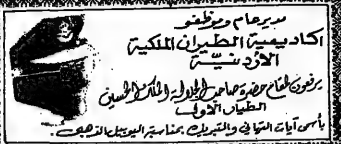 مدير عام وموظفو
اكاديمية الطيران الملكية
الاردنيّة
يرفعون لمقام حضرة صاحب الجلالة الملك الحسين
الطيار الأول
بأسمى آيات التهاني والتبريك بمناسبة اليوبيل الذهبي.